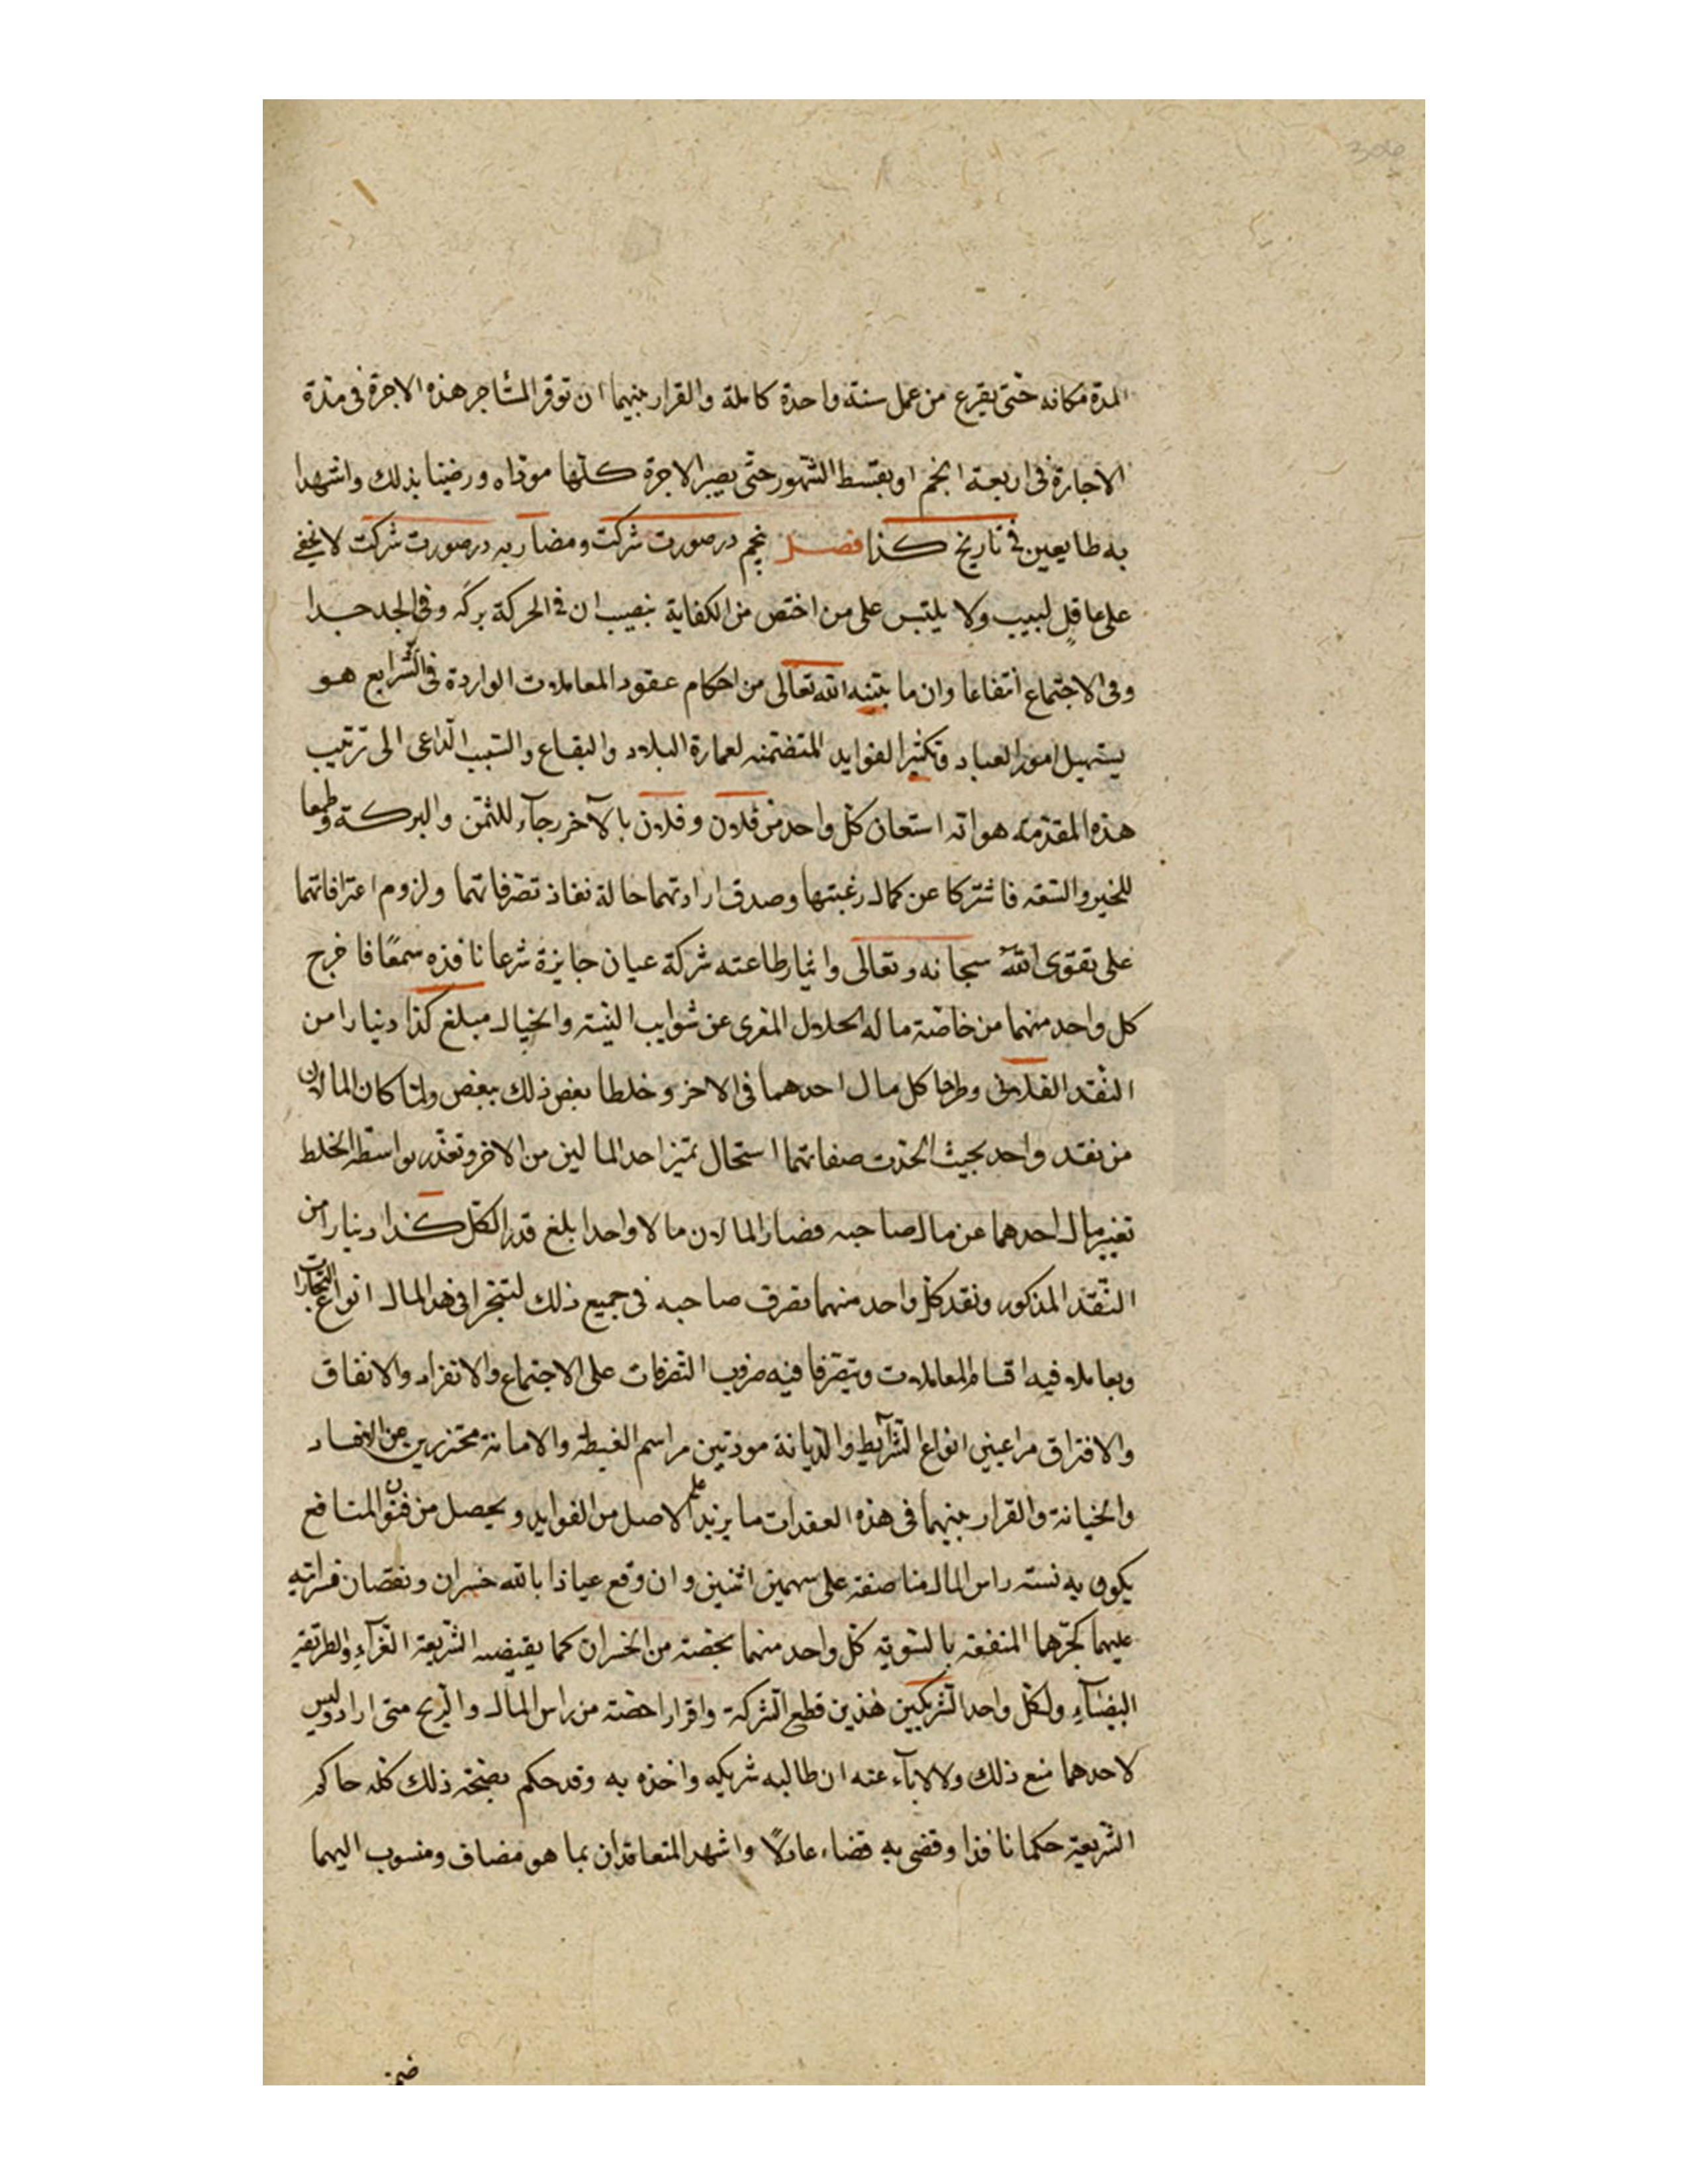 306
المدة مكانه حتى يفرغ من عمل سنة واحدة كاملة والقرار بينهما ان توفر المستاجر هذه الاجرة فى مدة
الاجارة فى اربعة انجم او بقسط الشهور حتى يصير الاجرة كلها موداه ورضينا بذلك واشهدا
به طايعين فى تاريخ كذا فصل پنجم در صورت شركت ومضاربه در صورت شركت لا يخفى
على عاقل لبيب ولا يلتبس على من اختص من الكفاية بنصيب ان فى الحركة بركة وفى الجد جدا
وفى الاجتماع انتفاعا وان ما بينه الله تعالى من احكام عقود المعاملات الواردة فى الشرايع هو
يستهيل امور العباد وتكثير الفوايد المتضمنه لعمارة البلاد والبقاع والسبب الداعى الى ترتيب
هذه المقدمة هو انه استعان كل واحد من فلان وفلان بالآخر رجآء للثمن والبركة وطمعا
للخير والسعه فاشتركا عن كمال رغبتها وصدق ارادتهما حالة نفاذ تصرفاتهما ولزوم اعترافاتهما
على تقوى الله سبحانه وتعالى وايثار طاعته شركة عيان جايزة شرعا نافذه سمعًا فاخرج
كل واحد منهما من خاصة ماله الحلال المعرى عن شوايب الشبه والخيال مبلغ كذا دينارا من
النقد الفلانى وطرحا كل مال احدهما فى الاخر وخلطا بعض ذلك ببعض ولما كان المالان
من نقد واحد بحيث اتحدت صفاتهما استحال تميز احد المالين من الاخر وتعذر بواسطه الخلط
تغيير مال احدهما عن مال صاحبه فصار المالان مالا واحدا بلغ قدر الكل كذا دينارا من
النقد المذكور ونفد كل واحد منهما تصرف صاحبه فى جميع ذلك لتتجرا فى هذا المال انواع التجارات
ويعاملا فيه اقسام المعاملات ويتصرفا فيه ضروب التصرفات على الاجتماع والانفراد والاتفاق
والافتراق مراعيني انواع الشرآيط والديانة مودتين مراسم الغبطة والامانة محترزين عن الفساد
والخيانة والقرار بينهما فى هذه العقدات ما يزيد على الاصل من الفوايد ويحصل من فنون المنافع
يكون به نسبة راس المال مناصفة على سهمين اثنين وان وقع عياذا بالله خسران ونقصان
عليهما كجرهما المنفعة بالسوية كل واحد منهما بحصته من الخسران كما يقتضيه الشريعة الغرآء والطريقه
البيضآء ولكل واحد الشريكين هذين قطع الشركة واقرار احصته من راس المال والربح متى اراد وليس
لاحدهما منع ذلك ولا الابآء عنه ان طالبه شريكه واخذه به وقد حكم بصحة ذلك كله حاكم
الشريعة حكما نافذا وقضى به قضاء عادلًا واشهد المتعاقدان بما هو مضاف ومنسوب اليهما